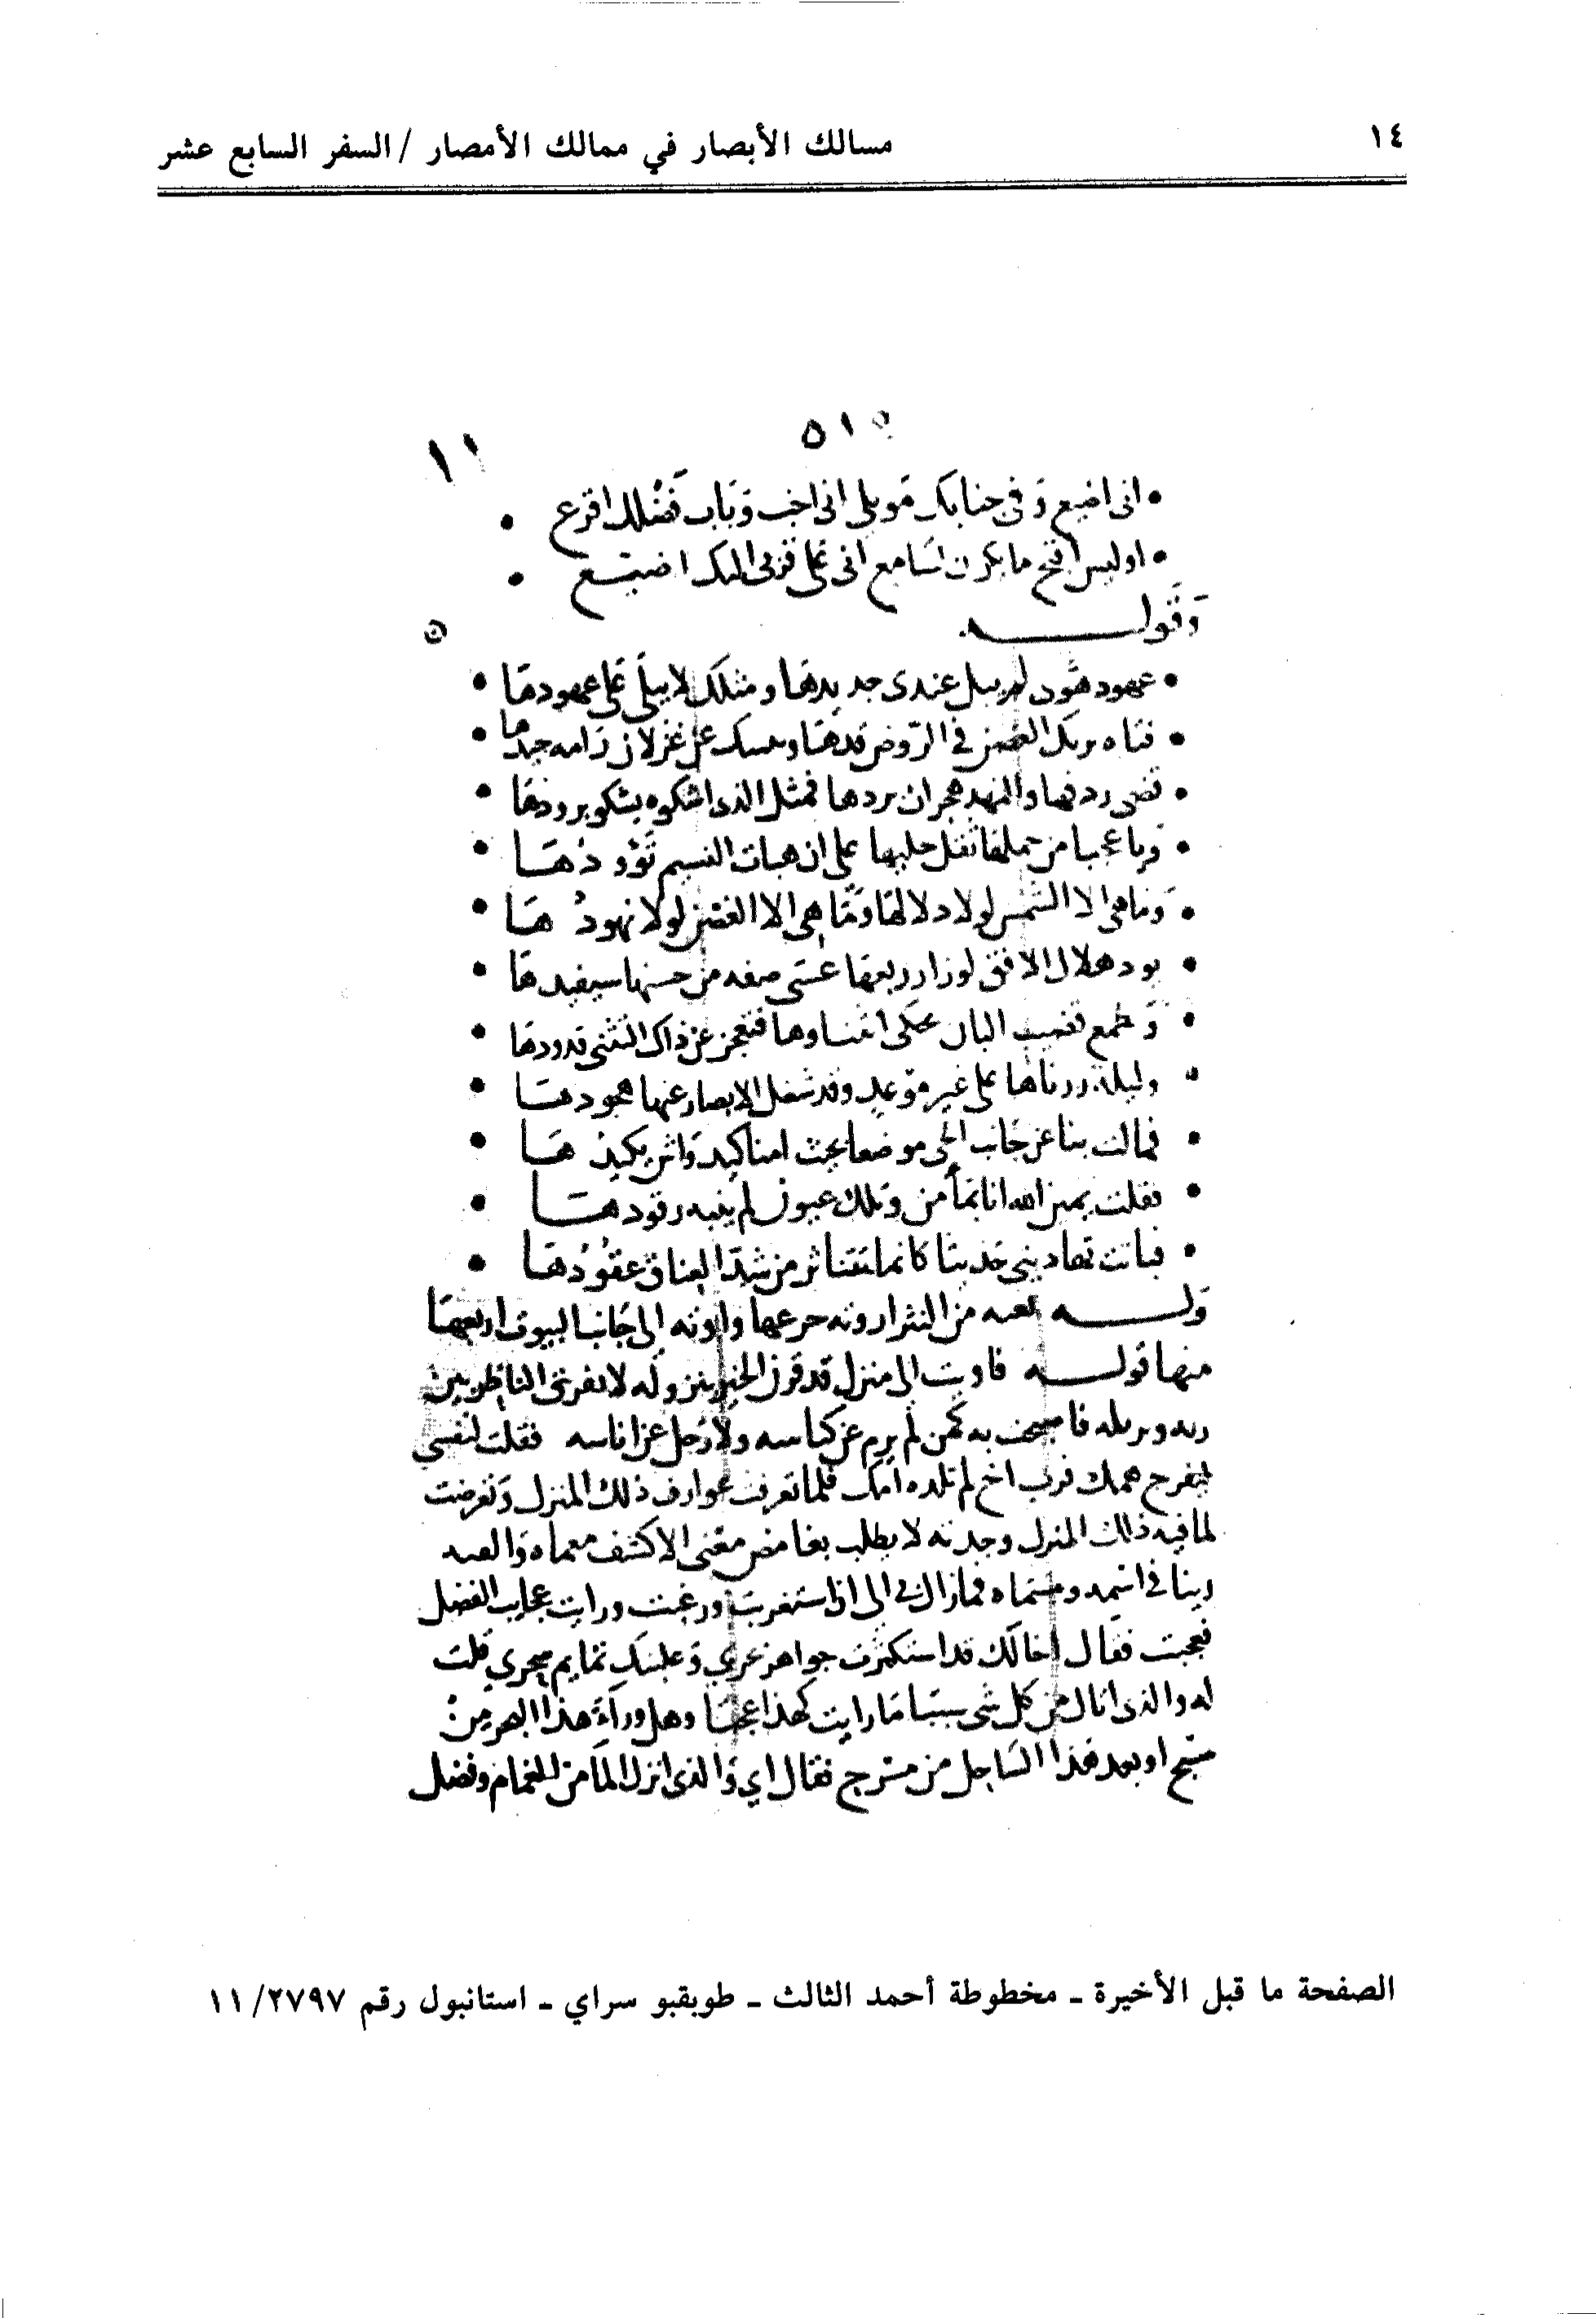 ١٤
مسالك الأبصار في ممالك الأمصار / السفر السابع عشر
٥١٥
١١
• انى اضيع وفي جنابك موىلى انى اخب وباب فضلك اقرع •
• اوليس اقبح ما يكرن لسامع انى على قربى اليك اضيع •
وقوله
• عهود هوى لم يبل عندى جديدها ومثلك لا يبلى على عهودها •
• فتاه تريك الغصن في الروض قدها وتمسك عن غزلان رامه جيدها •
• ردفها والنهد هجران بردها فمثل الذى اشكوه يشكو برودها •
• ويا عجبا من حملها ثقل حليها على ان هبات النسيم تؤودها •
• وما هى الا الشمس لولا دلالها وما هى الا الغصن لولا نهودها •
• يود هلال الافق لو زار ربعها عسى صفه من حسنها سيفيدها •
• وتطمع قضب البان تحكى انثناوها فتعجز عن ذاك التثنى قدودها •
• وليلة زرناها على غير موعد وقد شغل الابصار عنها هجودها •
• فمالت بنا عن جانب الحى موضعا بحيث امنا كيد واش يكيدها •
• فقلت يمين الله انا بمأمن وتلك عيون لم ينبه رقودها •
• فباتت تهادينى حديثا كانما تتناثر من شد العناق عقودها •
وله من النثر اروته جرعها واوته إلى جانب البيوت اربعها
منها قوله فاويت الى منزل قد قرن الخير بنزوله لا يفرق الناظر بين
ربه ونزيله فاصبحت به كمن لم يرم عن كناسه ولا رحل عن اناسه فقلت لنفسي
ليفرح همك فرب اخ لم تلده امك فلما تعرفت عوارف ذلك المنزل وتعرضت
لما فيه ذلك المنزل وجدته لا يطلب بغامض معنى الا كشف معماه والفيته
ربنا في اسمه ومسماه فما زال بى الى ان استغربت ورغبت ورايت عجايب الفضل
فعجبت فقال اخالك قد استكثرت جواهر بحري وعلمتك تمايم سحري قلت
له والذى انالك من كل شى سببا ما رايت كهذا عجبا وهل وراء هذا البحر من
مسبح او بعد هذا الساحل من مسرح فقال اي والذى انزل الما من الغمام وفضل
الصفحة ما قبل الأخيرة ـ مخطوطة أحمد الثالث ـ طوبقبو سراي ـ استانبول رقم ٢٧٩٧/١١